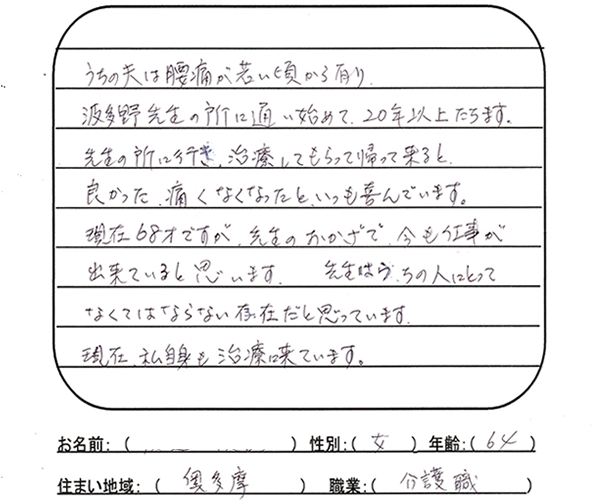 うちの夫は腰痛が若い頃から有り、
波多野先生の所に通い始めて、20年以上たちます。
先生の所に行き、治療してもらって帰って来ると、
良かった、痛くなくなったと、いつも喜んでいます。
現在68才ですが、先生のおかげで、今も仕事が
出来ていると思います。 先生はうちの人にとって
なくてはならない存在だと思っています。
現在、私自身も治療に来ています。
お名前:( ) 性別:( 女 ) 年齢:( 64 )
住まい地域:( 奥多摩 ) 職業:( 介護職 )